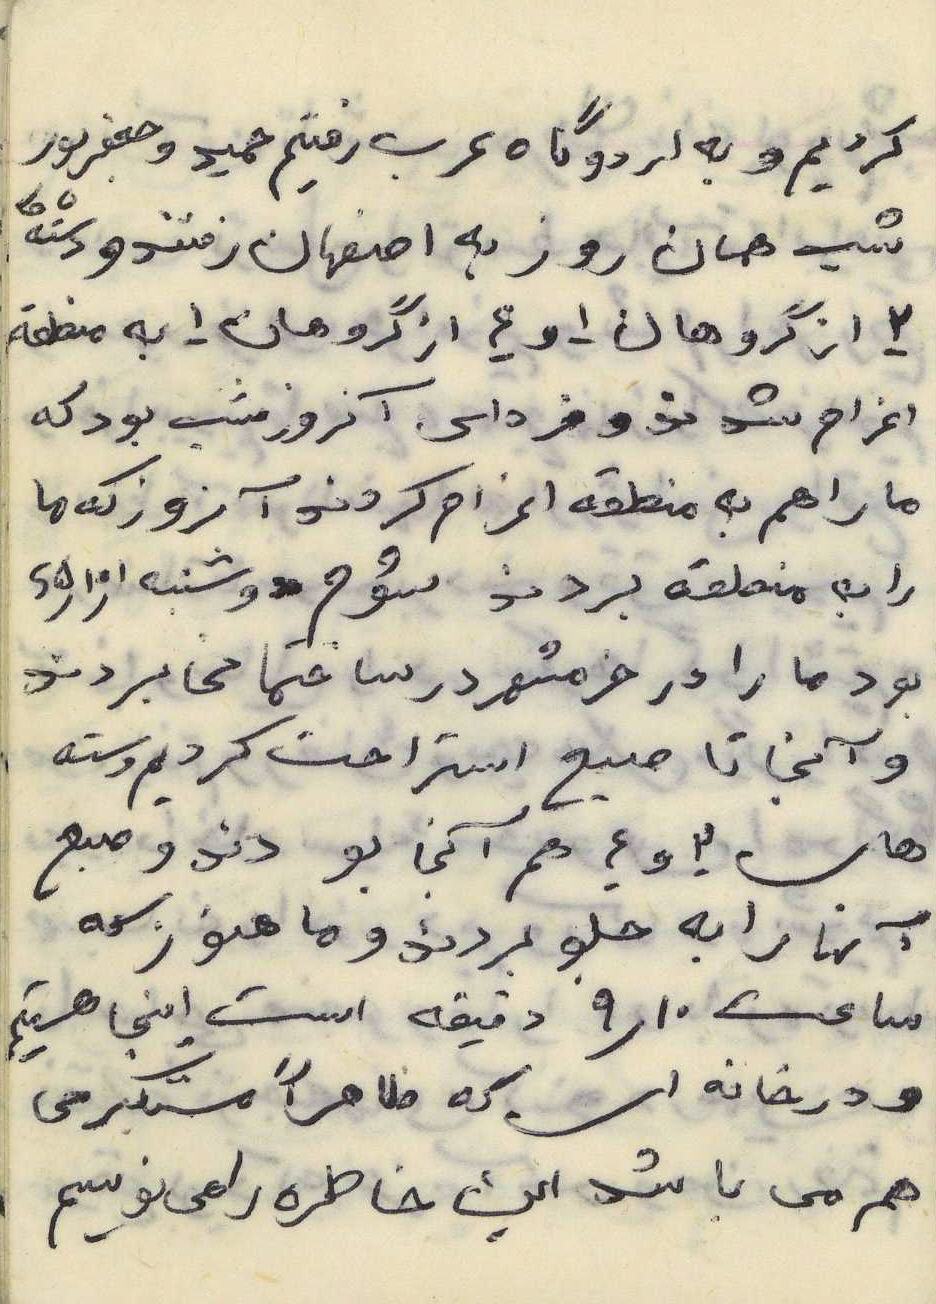 کردیم و به اردوگاه عرب رفتیم حمید و جعفرپور
شب همان روز به اصفهان رفتند و دسته های
۲ از گروهان ۱ و ۴ از گروهان ۱ به منطقه
اعزام شدند و فردای آنروز شب بود که
ما را هم به منطقه اعزام کردند آنروز که ما
را به منطقه بردند دوشنبه ۶۵/۱۰/۱
بود ما را در خرمشهر در ساختمانی بردند
و آنجا تا صبح استراحت کردیم دسته
های ۲ و ۴ هم آنجا بودند و صبح
آنها را به جلو بردند و ما هنوز که
ساعت ۹/۱۰ دقیقه است اینجا هستیم
و در خانه ای که ظاهراً سنگر می
هم می باشد این خاطره را می نویسم